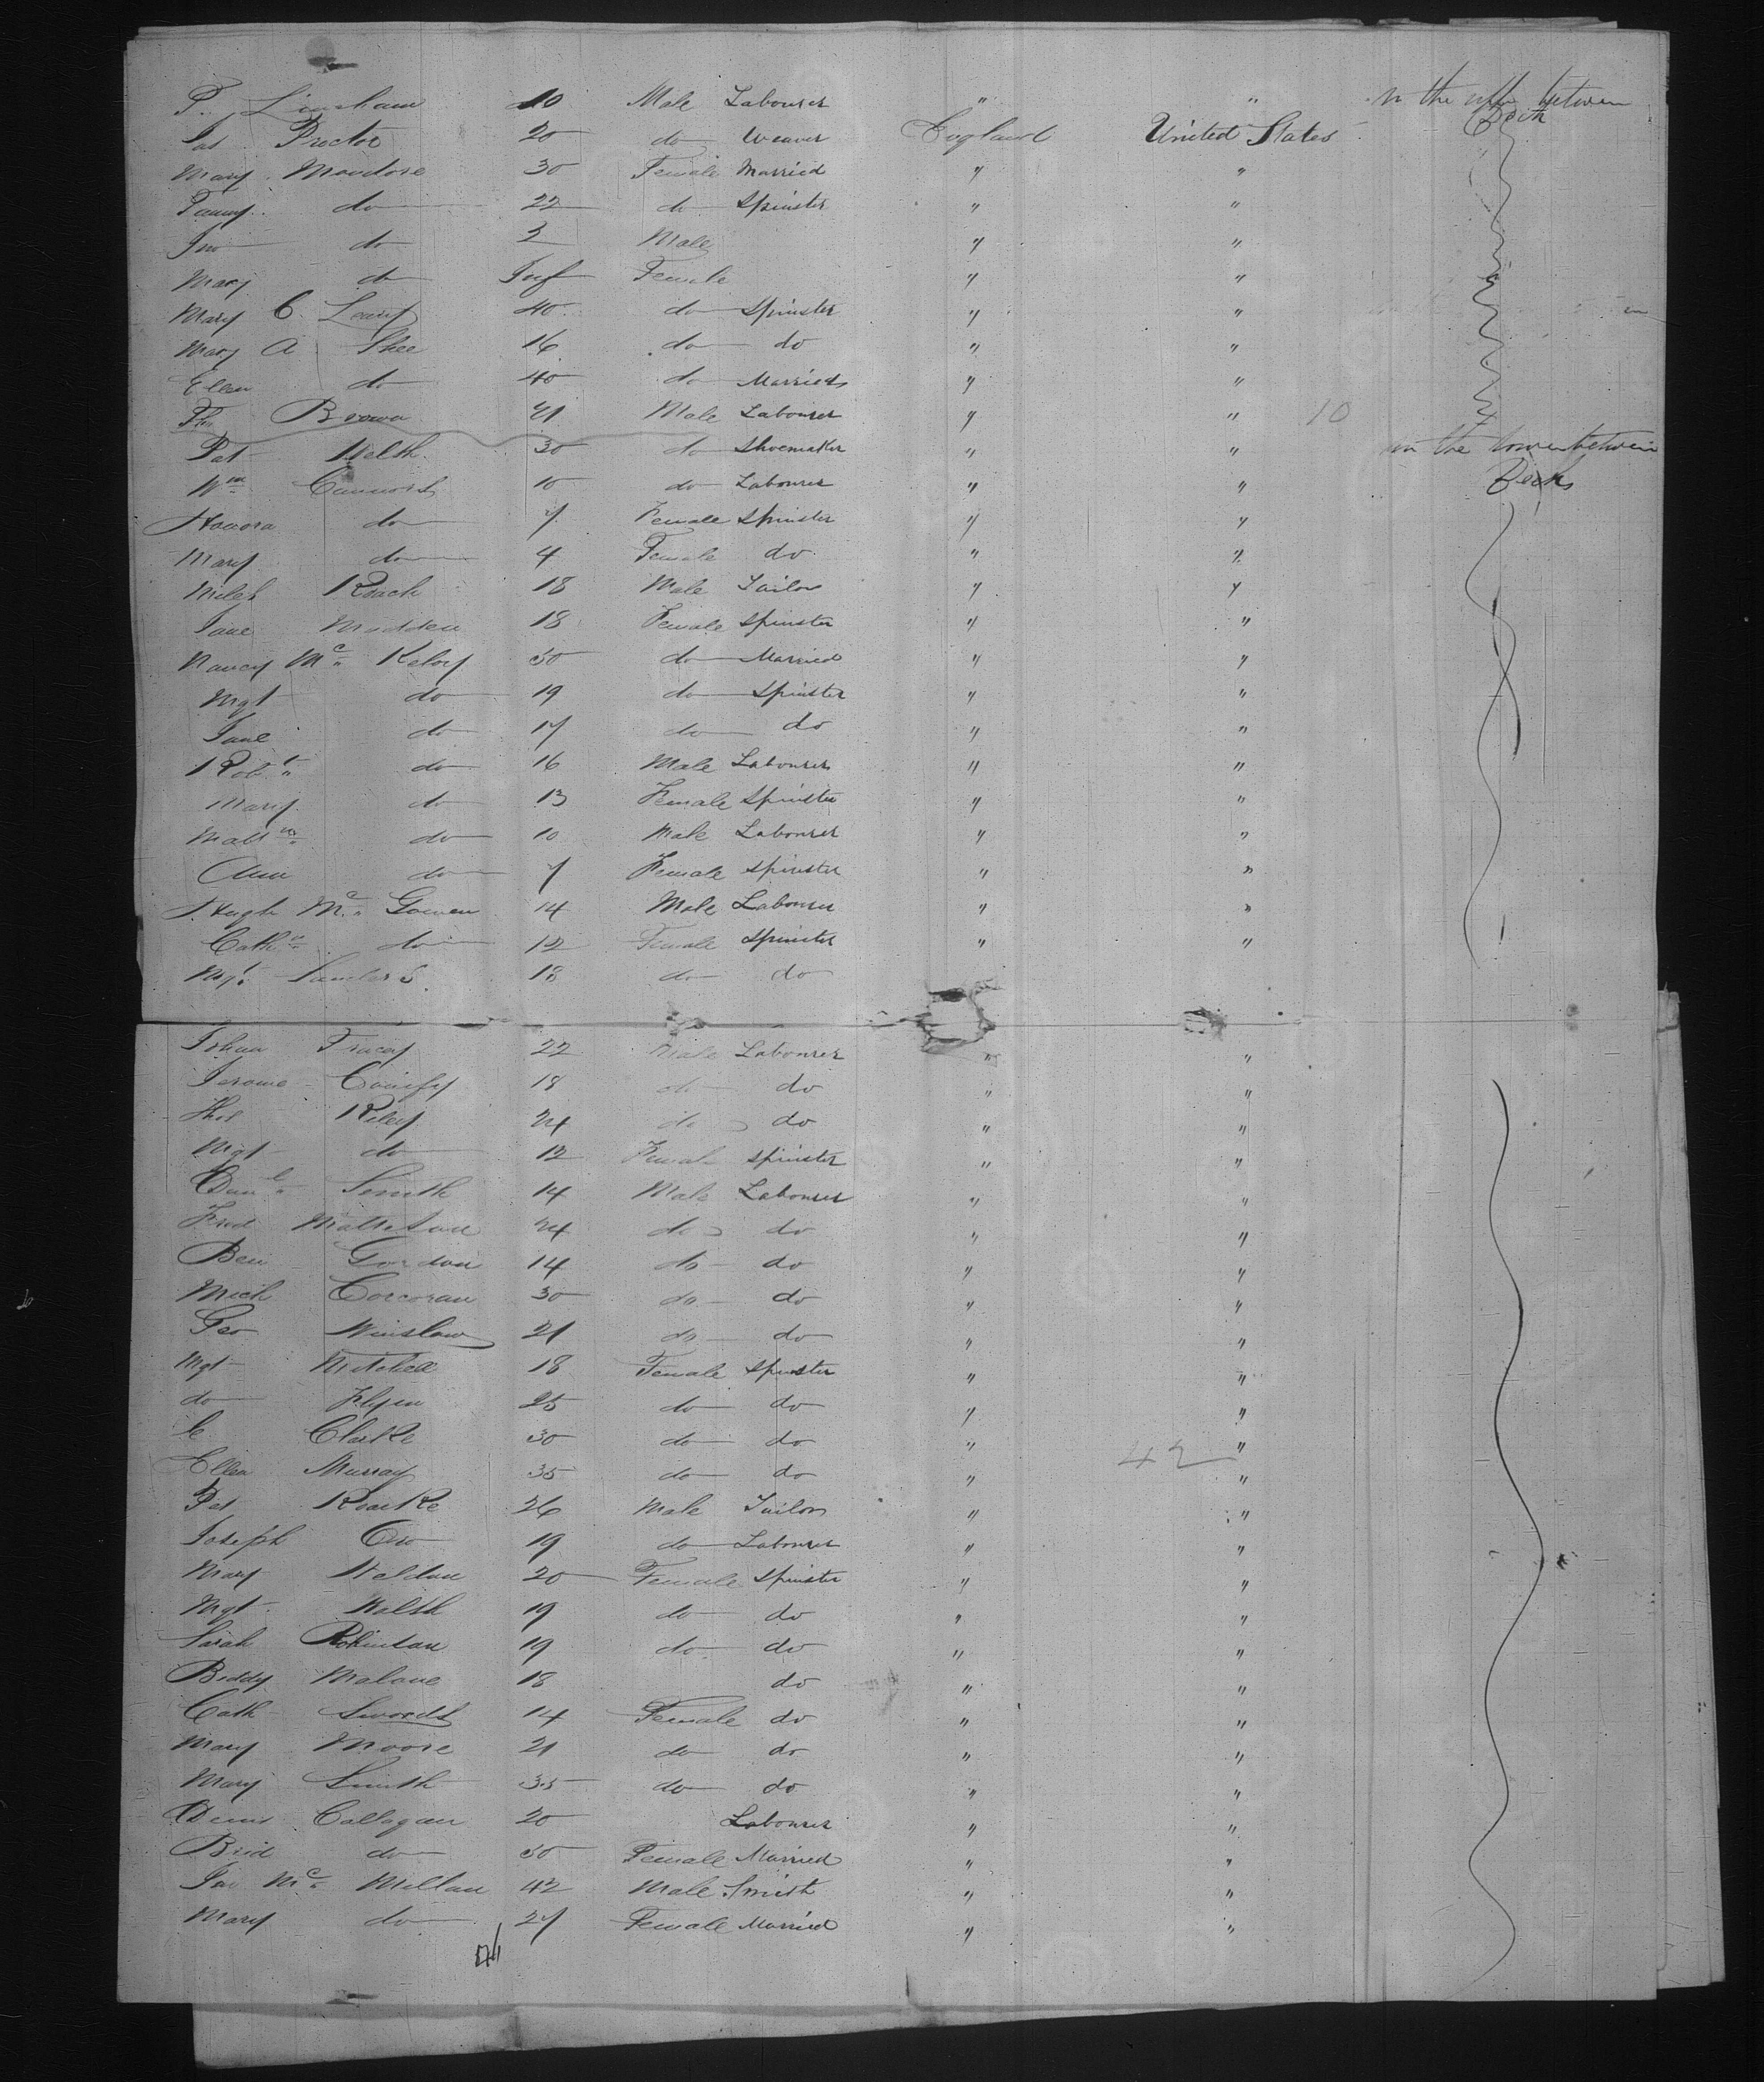 P. Linsham 40 Male Labourer " " in the upper between
Jas Proctor 20 do Weaver England United States Deck
Mary Mondore 30 Female Married " "
Fanny do 22 do Spinster " "
Jno do 2 Male " "
Mary do Inf Female " "
Mary C. Leary 40 do Spinster " "
Mary A Shee 16 do do " "
Ellen do 40 do Married " "
Thos Brown 21 Male Labourer " " 10
Pat Welsh 30 do Shoemaker " " in the lower between
Wm Connors 10 do Labourer " " Decks
Honora do 7 Female Spinster " "
Mary do 4 Female do " "
Miles Roach 18 Male Tailor " "
Jane Madden 18 Female Spinster " "
Nancy Mc Kelvy 50 do Married " "
Mgt do 19 do Spinster " "
Jane do 17 do do " "
Robt do 16 Male Labourer " "
Mary do 13 Female Spinster " "
Matt do 10 Male Labourer " "
Ann do 7 Female Spinster " "
Hugh Mc Gowen 14 Male Labourer " "
Cath do 12 Female Spinster " "
Mgt Sanders 18 do do
Johan Tracey 22 Male Labourer " "
Jerome 18 do do " "
Thos Riley 24 do do " "
Mgt do 12 Female Spinster " "
Danl Smith 14 Male Labourer " "
Fred 24 do do " "
Ben Gordon 14 do do " "
Mich Corcoran 30 do do " "
Geo Winslow 21 do do " "
Mgt Mitchell 18 Female Spinster " "
do Flynn 25 do do " "
C Clarke 30 do do " "
42
Ellen Murray 35 do do " "
Pat Roarke 26 Male Tailor " "
Joseph 19 do Labourer " "
Mary Weldon 20 Female Spinster " "
Mgt Walsh 19 do do " "
Sarah Robinson 19 do do " "
Biddy Malone 18 do " "
Cath Swords 14 Female do " "
Mary Moore 21 do do " "
Mary Smith 35 do do " "
Denis Callagan 20 Labourer " "
Brid do 50 Female Married " "
Jas Mc Millan 42 Male Smith " "
Mary do 27 Female Married " "